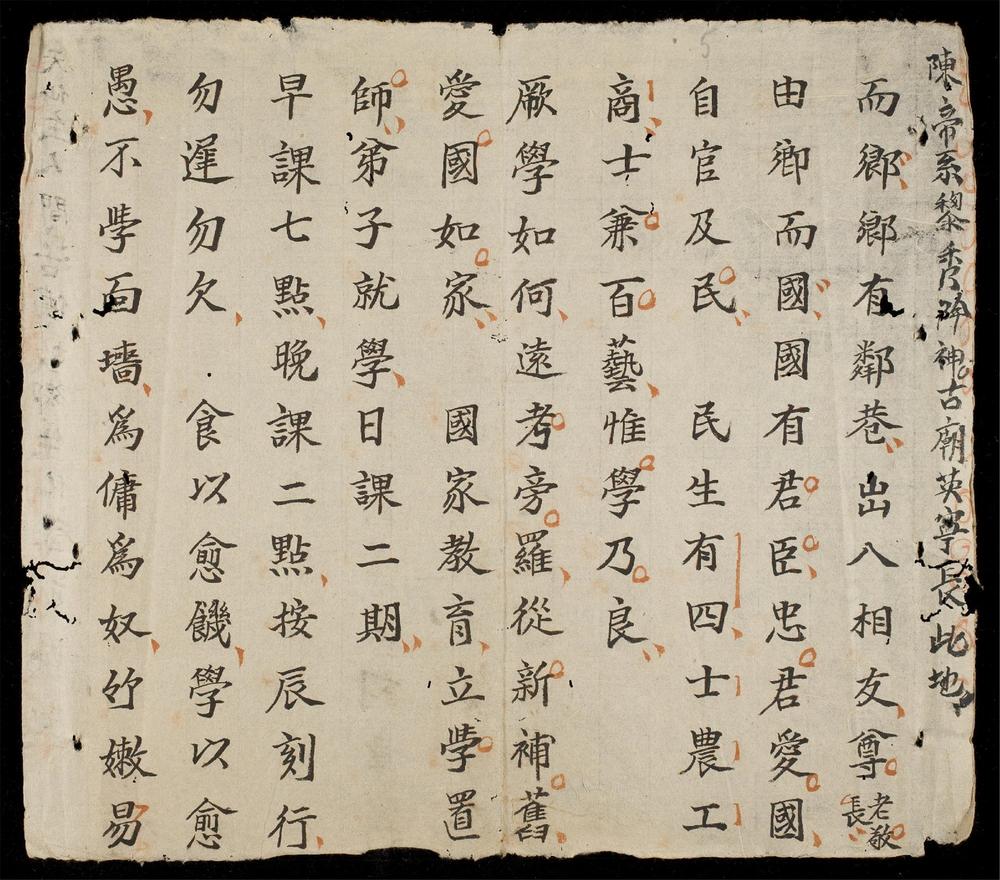 陳帝系黎秀時神古廟英寧長此地
而鄉鄉有鄰巷出入相友尊老敬長
由鄉而國國有君臣忠君愛國
自官及民 民生有四士農工
商士兼百藝惟學乃良
厥學如何遠考旁羅從新補舊
愛國如家 國家教育立學置
師第子就學日課二期
早課七點晚課二點按辰刻行
勿遲勿欠 食以愈饑學以愈
愚不學面墻爲傭爲奴竹嫩易